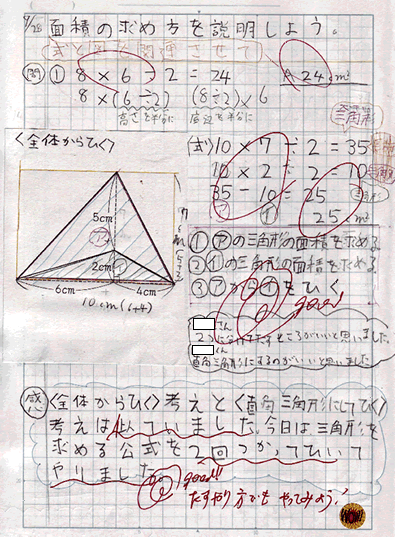 9/28 面積の求め方を説明しよう。
式と図を関連させて
問 ① 8×6÷2=24 A 24cm²
8×(6÷2) (8÷2)×6
高さを半分に 底辺を半分に
<全体からひく>
5cm
㋐
2cm
㋑
6cm
4cm
10cm(6+4)
(式) 10×7÷2=35
10×2÷2=10
35-10=25
㋐ ㋑
25cm²
①㋐の三角形の面積を求める
②㋑の三角形の面積を求める
③㋐から㋑をひく
good!
さん
2つに分けてたすところがいいと思いました。
くん
直角三角形にするのがいいと思いました
感 <全体からひく>考えと<直角三角形にしてひく>
考えは似ていました。今日は三角形を
求める公式を2回つかってひいて
やりました。
good!!
たすやり方でもやってみよう!